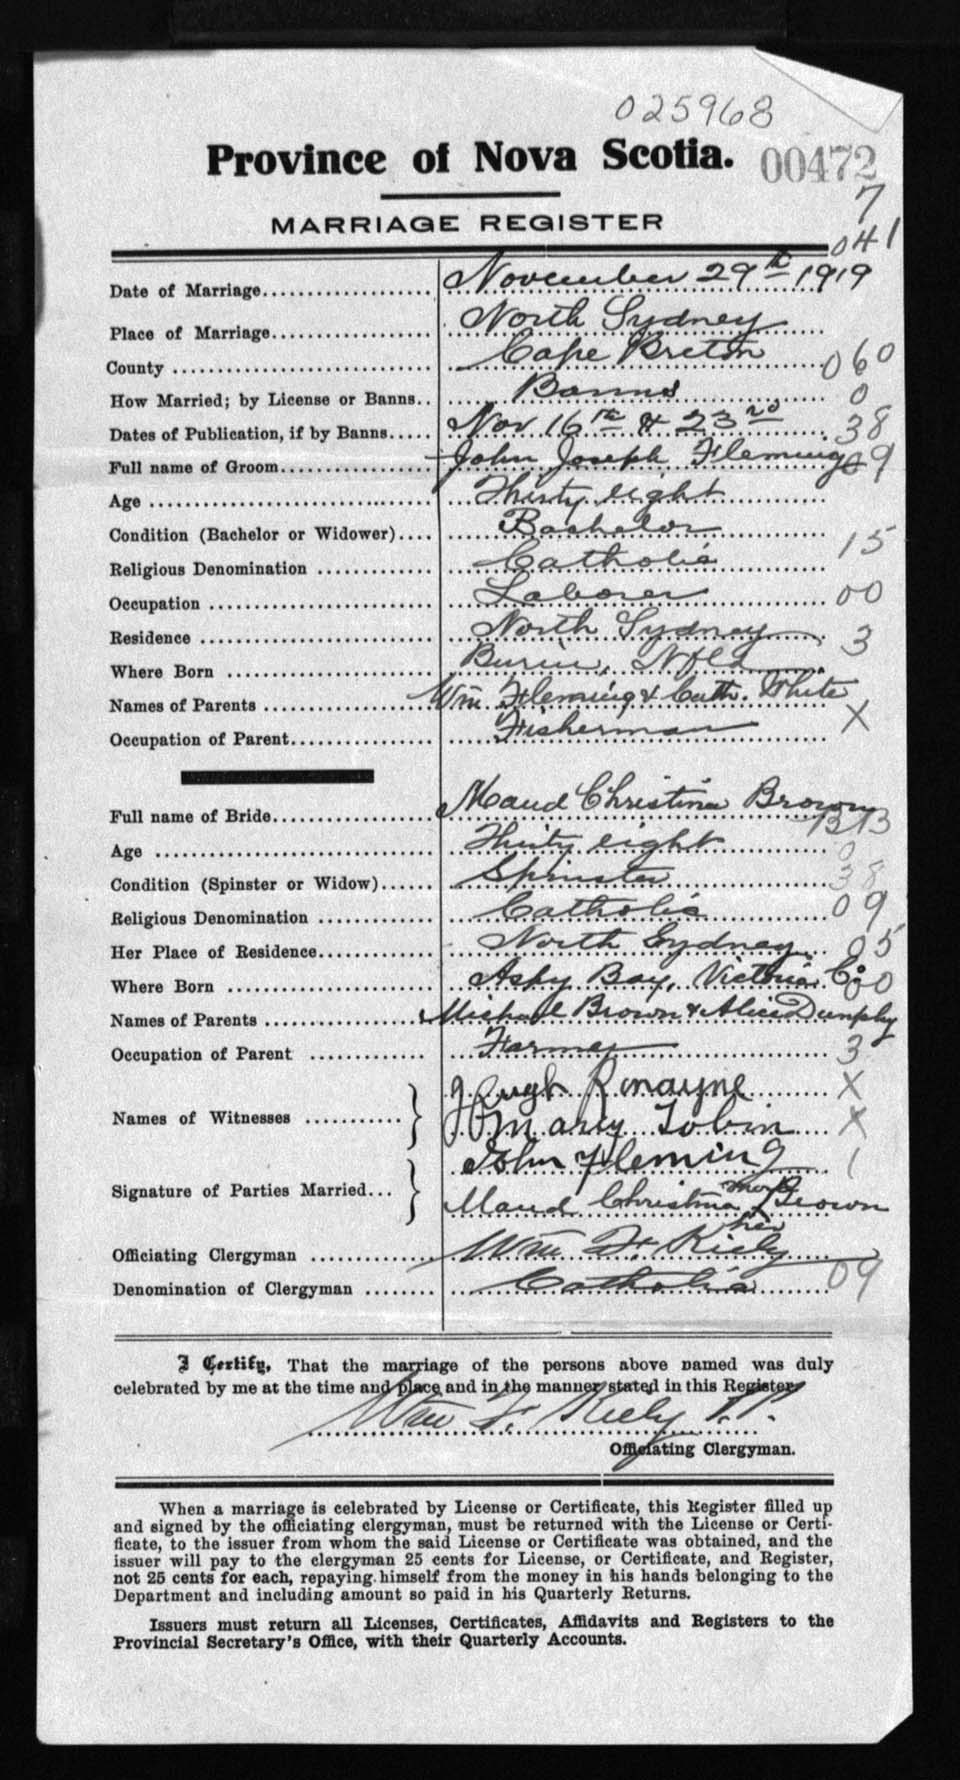 025968
Province of Nova Scotia.
00472
7
MARRIAGE REGISTER
041
Date of Marriage.................... November 29th 1919
Place of Marriage................... North Sydney
County ............................. Cape Breton 060
How Married; by License or Banns.. Banns 0
Dates of Publication, if by Banns..... Nov 16th & 23rd 38
Full name of Groom.................. John Joseph Fleming 09
Age ................................ Thirty eight
Condition (Bachelor or Widower).... Bachelor
Religious Denomination ............. Catholic 15
Occupation ......................... Laborer 00
Residence .......................... North Sydney 3
Where Born ......................... Burin, Nfld
Names of Parents ................... Wm Fleming & Cath. White
Occupation of Parent................ Fisherman X
Full name of Bride.................. Maud Christina Brown
Age ................................ Thirty eight 0
Condition (Spinster or Widow)...... Spinster 38
Religious Denomination ............. Catholic 09
Her Place of Residence.............. North Sydney 05
Where Born ......................... Aspy Bay, Victoria Co. 00
Names of Parents ................... Michael Brown & Alice Dunphy
Occupation of Parent ............... Farmer 3
Hugh Romayne X
Names of Witnesses ...........
Mary Tobin X
John Fleming 1
Signature of Parties Married...
Maud Christina Brown
her
Officiating Clergyman .............. Wm F. Kiely
Denomination of Clergyman ........ Catholic 09
I Certify, That the marriage of the persons above named was duly
celebrated by me at the time and place and in the manner stated in this Register
Wm F. Kiely P.P.
Officiating Clergyman.
When a marriage is celebrated by License or Certificate, this Register filled up
and signed by the officiating clergyman, must be returned with the License or Certi-
ficate, to the issuer from whom the said License or Certificate was obtained, and the
issuer will pay to the clergyman 25 cents for License, or Certificate, and Register,
not 25 cents for each, repaying himself from the money in his hands belonging to the
Department and including amount so paid in his Quarterly Returns.
Issuers must return all Licenses, Certificates, Affidavits and Registers to the
Provincial Secretary's Office, with their Quarterly Accounts.